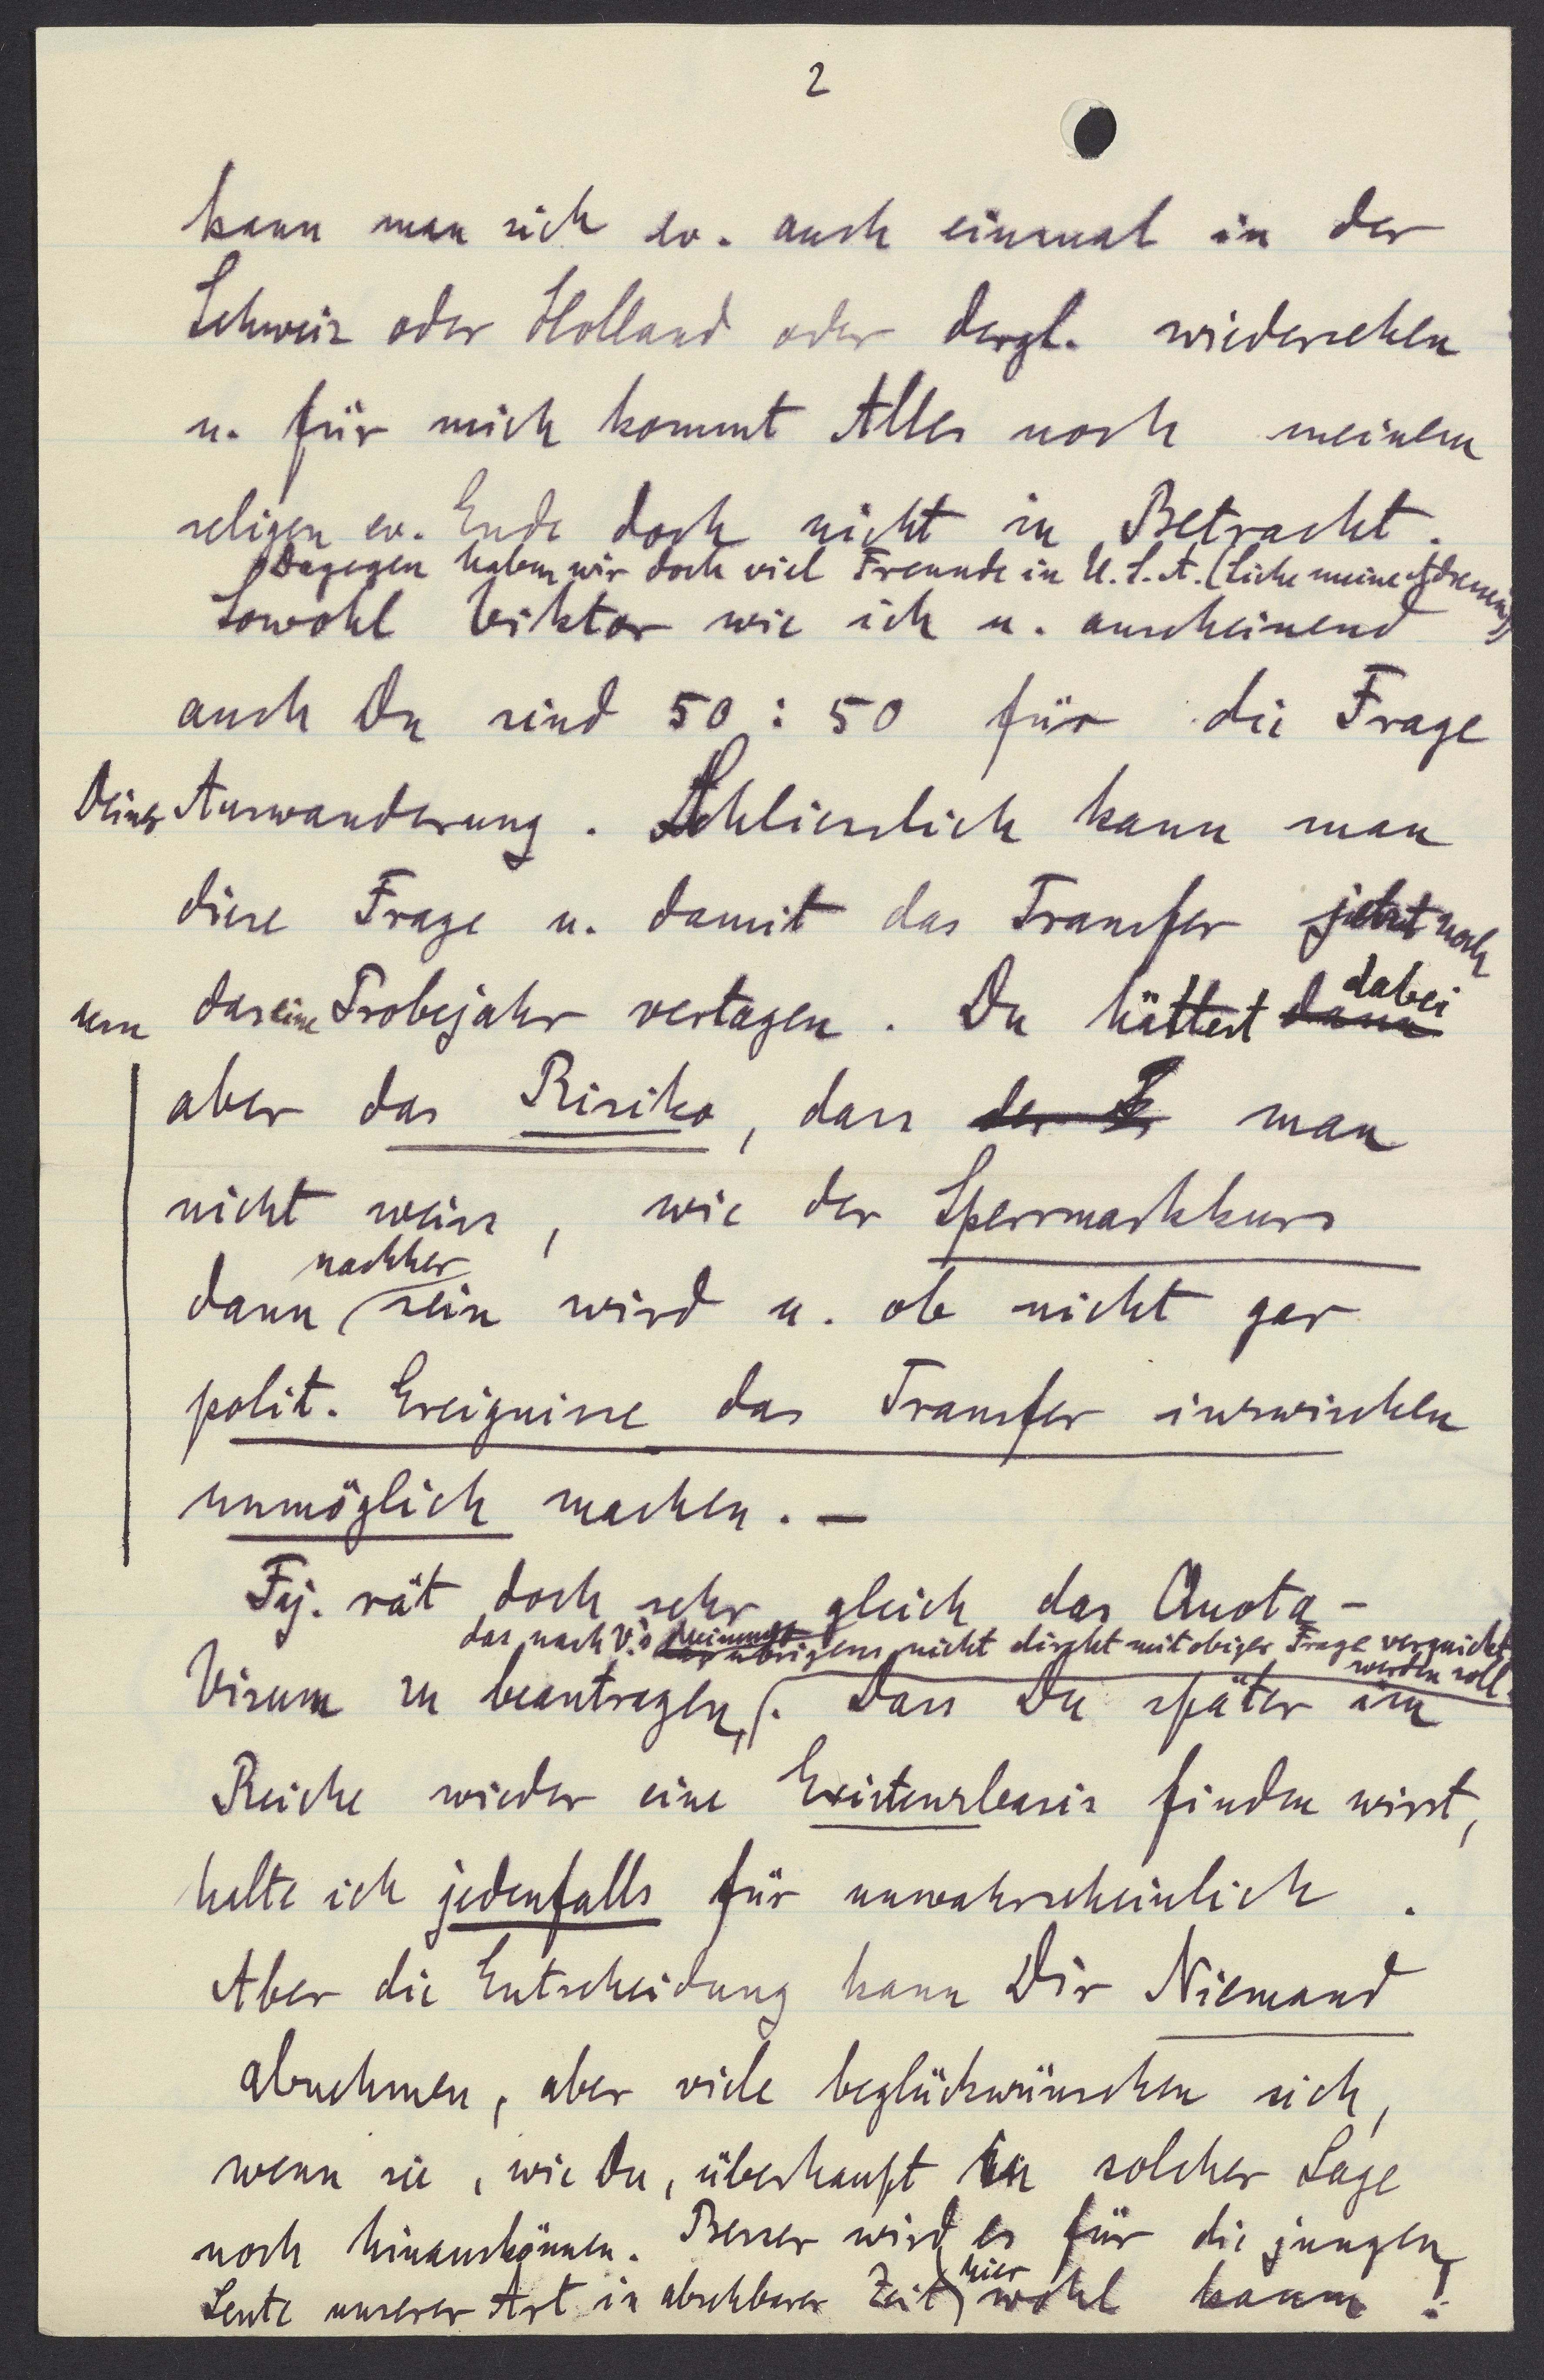 2
kann man sich ev. auch einmal in der
Schweiz oder Holland oder dergl. wiedersehen
u. für mich kommt Alles nach meinem
seligen ev. Ende doch nicht in Betracht.
Dagegen haben wir doch viel Freunde in U.S.A. (Siehe meine Adressen)
Sowohl Viktor wie ich u. anscheinend
auch Du sind 50 : 50 für die Frage
Deiner Auswanderung. Schliesslich kann man
diese Frage u. damit das Transfer jetzt noch
um das eine Probejahr vertagen. Du hättest dann dabei
aber das Risiko, dass der man
nicht weiss, wie der Sperrmarkkurs
nachher
dann sein wird u. ob nicht gar
polit. Ereignisse das Transfer inzwischen
unmöglich machen. —
Fej. rät doch sehr gleich das Quota-
das nach V.'s Meinung übrigens nicht direkt mit obiger Frage verquickt
werden soll.
Visum zu beantragen,. Dass Du später im
Reiche wieder eine Existenzbasis finden wirst,
halte ich jedenfalls für unwahrscheinlich.
Aber die Entscheidung kann Dir Niemand
abnehmen, aber viele beglückwünschen sich,
wenn sie, wie Du, überhaupt in solcher Lage
noch hinauskönnen. Besser wird es für die jungen
Leute unserer Art in absehbarer Zeit hier wohl kaum!